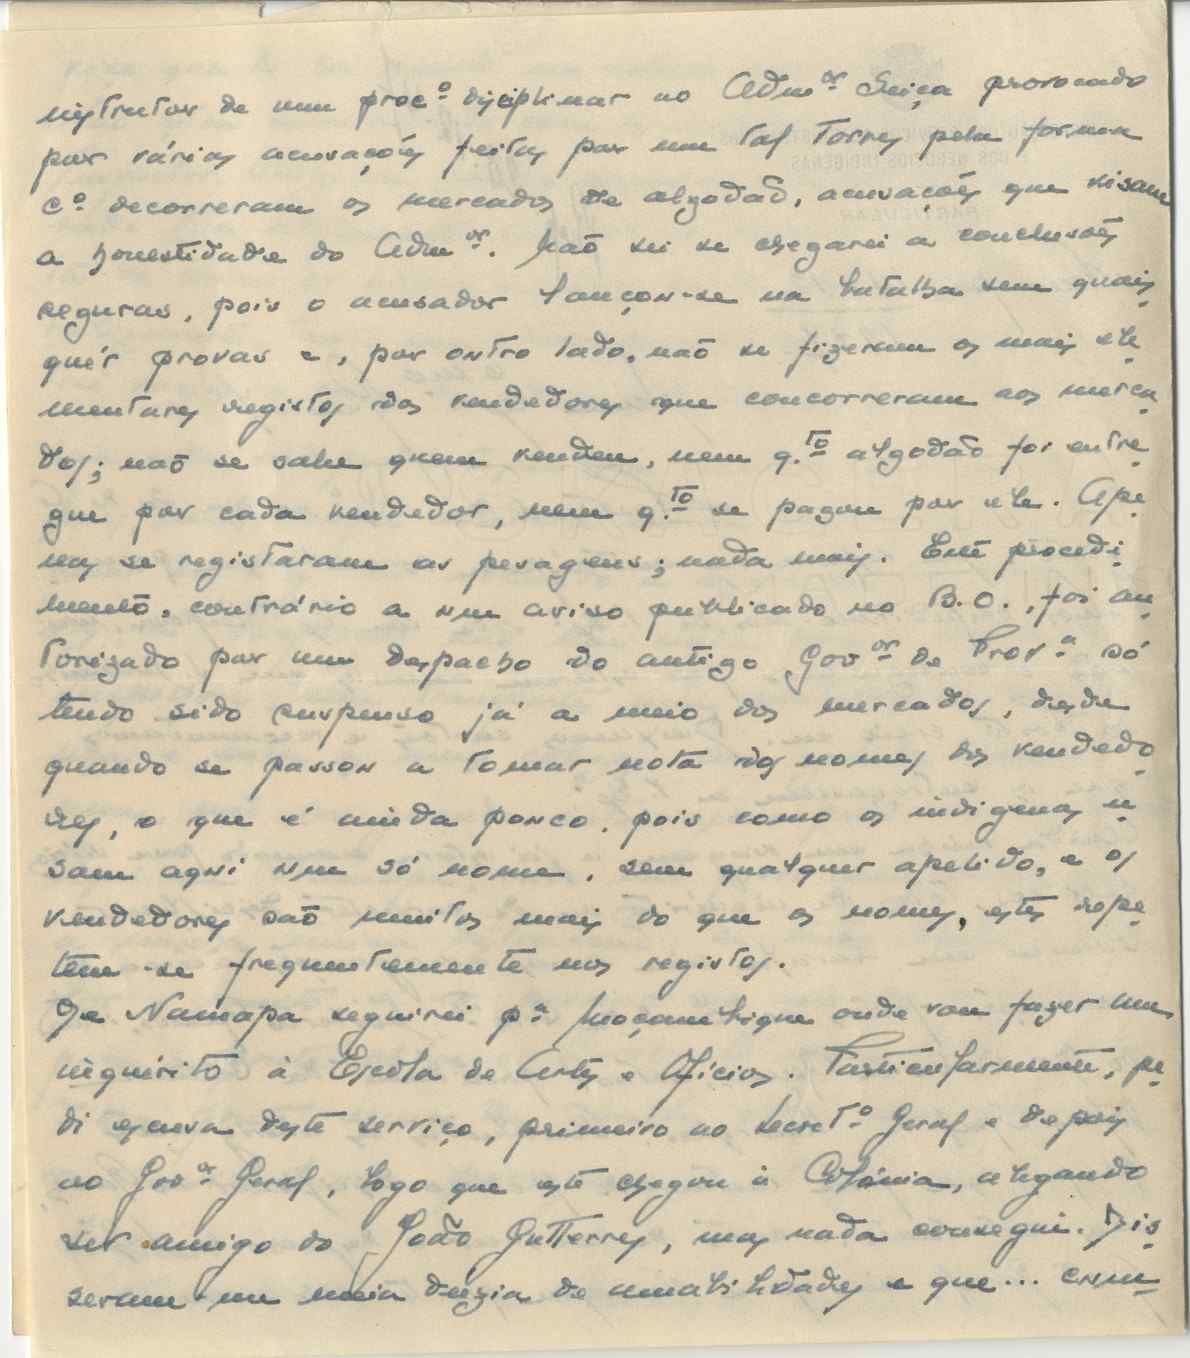 nistrutor de um proc.º disciplinar ao Adm.or Seiça provocado
por várias acusações feitas por um tal Torres pela forma
c.º decorreram os mercados de algodão, acusações que visam
a honestidade do Adm.or. Não sei se chegarei a conclusões
seguras, pois o acusador lançou-se na batalha sem quais-
quér provas e, por outro lado, não se fizeram os mais ele-
mentares registos dos vendedores que concorreram aos merca-
dos; não se sabe quem vendeu, nem q.to algodão foi entre-
gue por cada vendedor, nem q.to se pagou por ele. Ape-
nas se registaram as pesagens; nada mais. Este procedi-
mento, contrário a um aviso publicado no B.O., foi au-
torizado por um despacho do antigo Gov.or de Prov.a só
tendo sido suspenso já a meio dos mercados, desde
quando se passou a tomar nota dos nomes dos vendedo-
res, o que é ainda pouco, pois como os indígenas u-
sam aqui um só nome, sem qualquer apelido, e os
vendedores são muitos mais do que os nomes, estes repe-
tem-se frequentemente nos registos.
De Namapa seguirei p.a Moçambique onde vou fazer um
inquérito à Escola de Artes e Ofícios. Particularmente, pe-
di escusa deste serviço, primeiro ao Secret.º Geral e depois
ao Gov.or Geral, logo que este chegou à Colónia, alegando
ser amigo do João Gutterres, mas nada consegui. Dis-
seram-me meia duzia de amabilidades e que... cum-